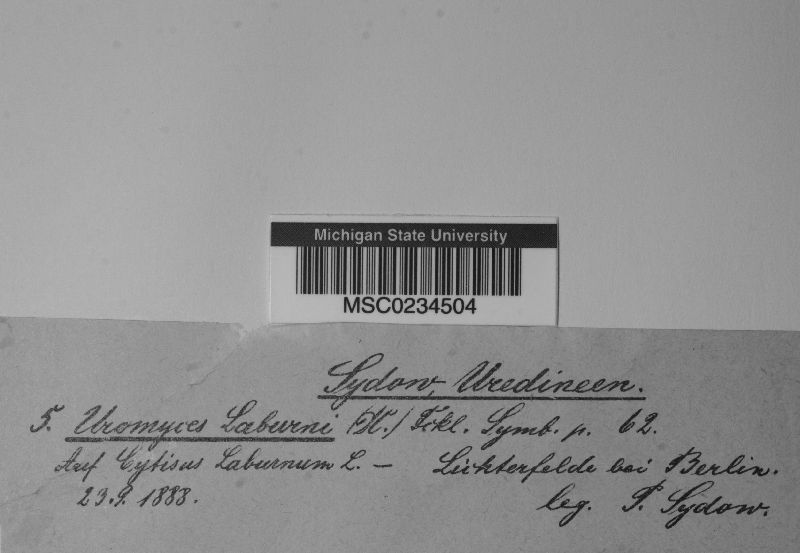 Michigan State University
MSC0234504
Sydow, Uredineen.
5. Uromyces Laburni Fckl. Symb. p. 62.
Auf Cytisus Laburnum L. — Lichterfelde bei Berlin.
23.9. 1888. leg. P. Sydow.